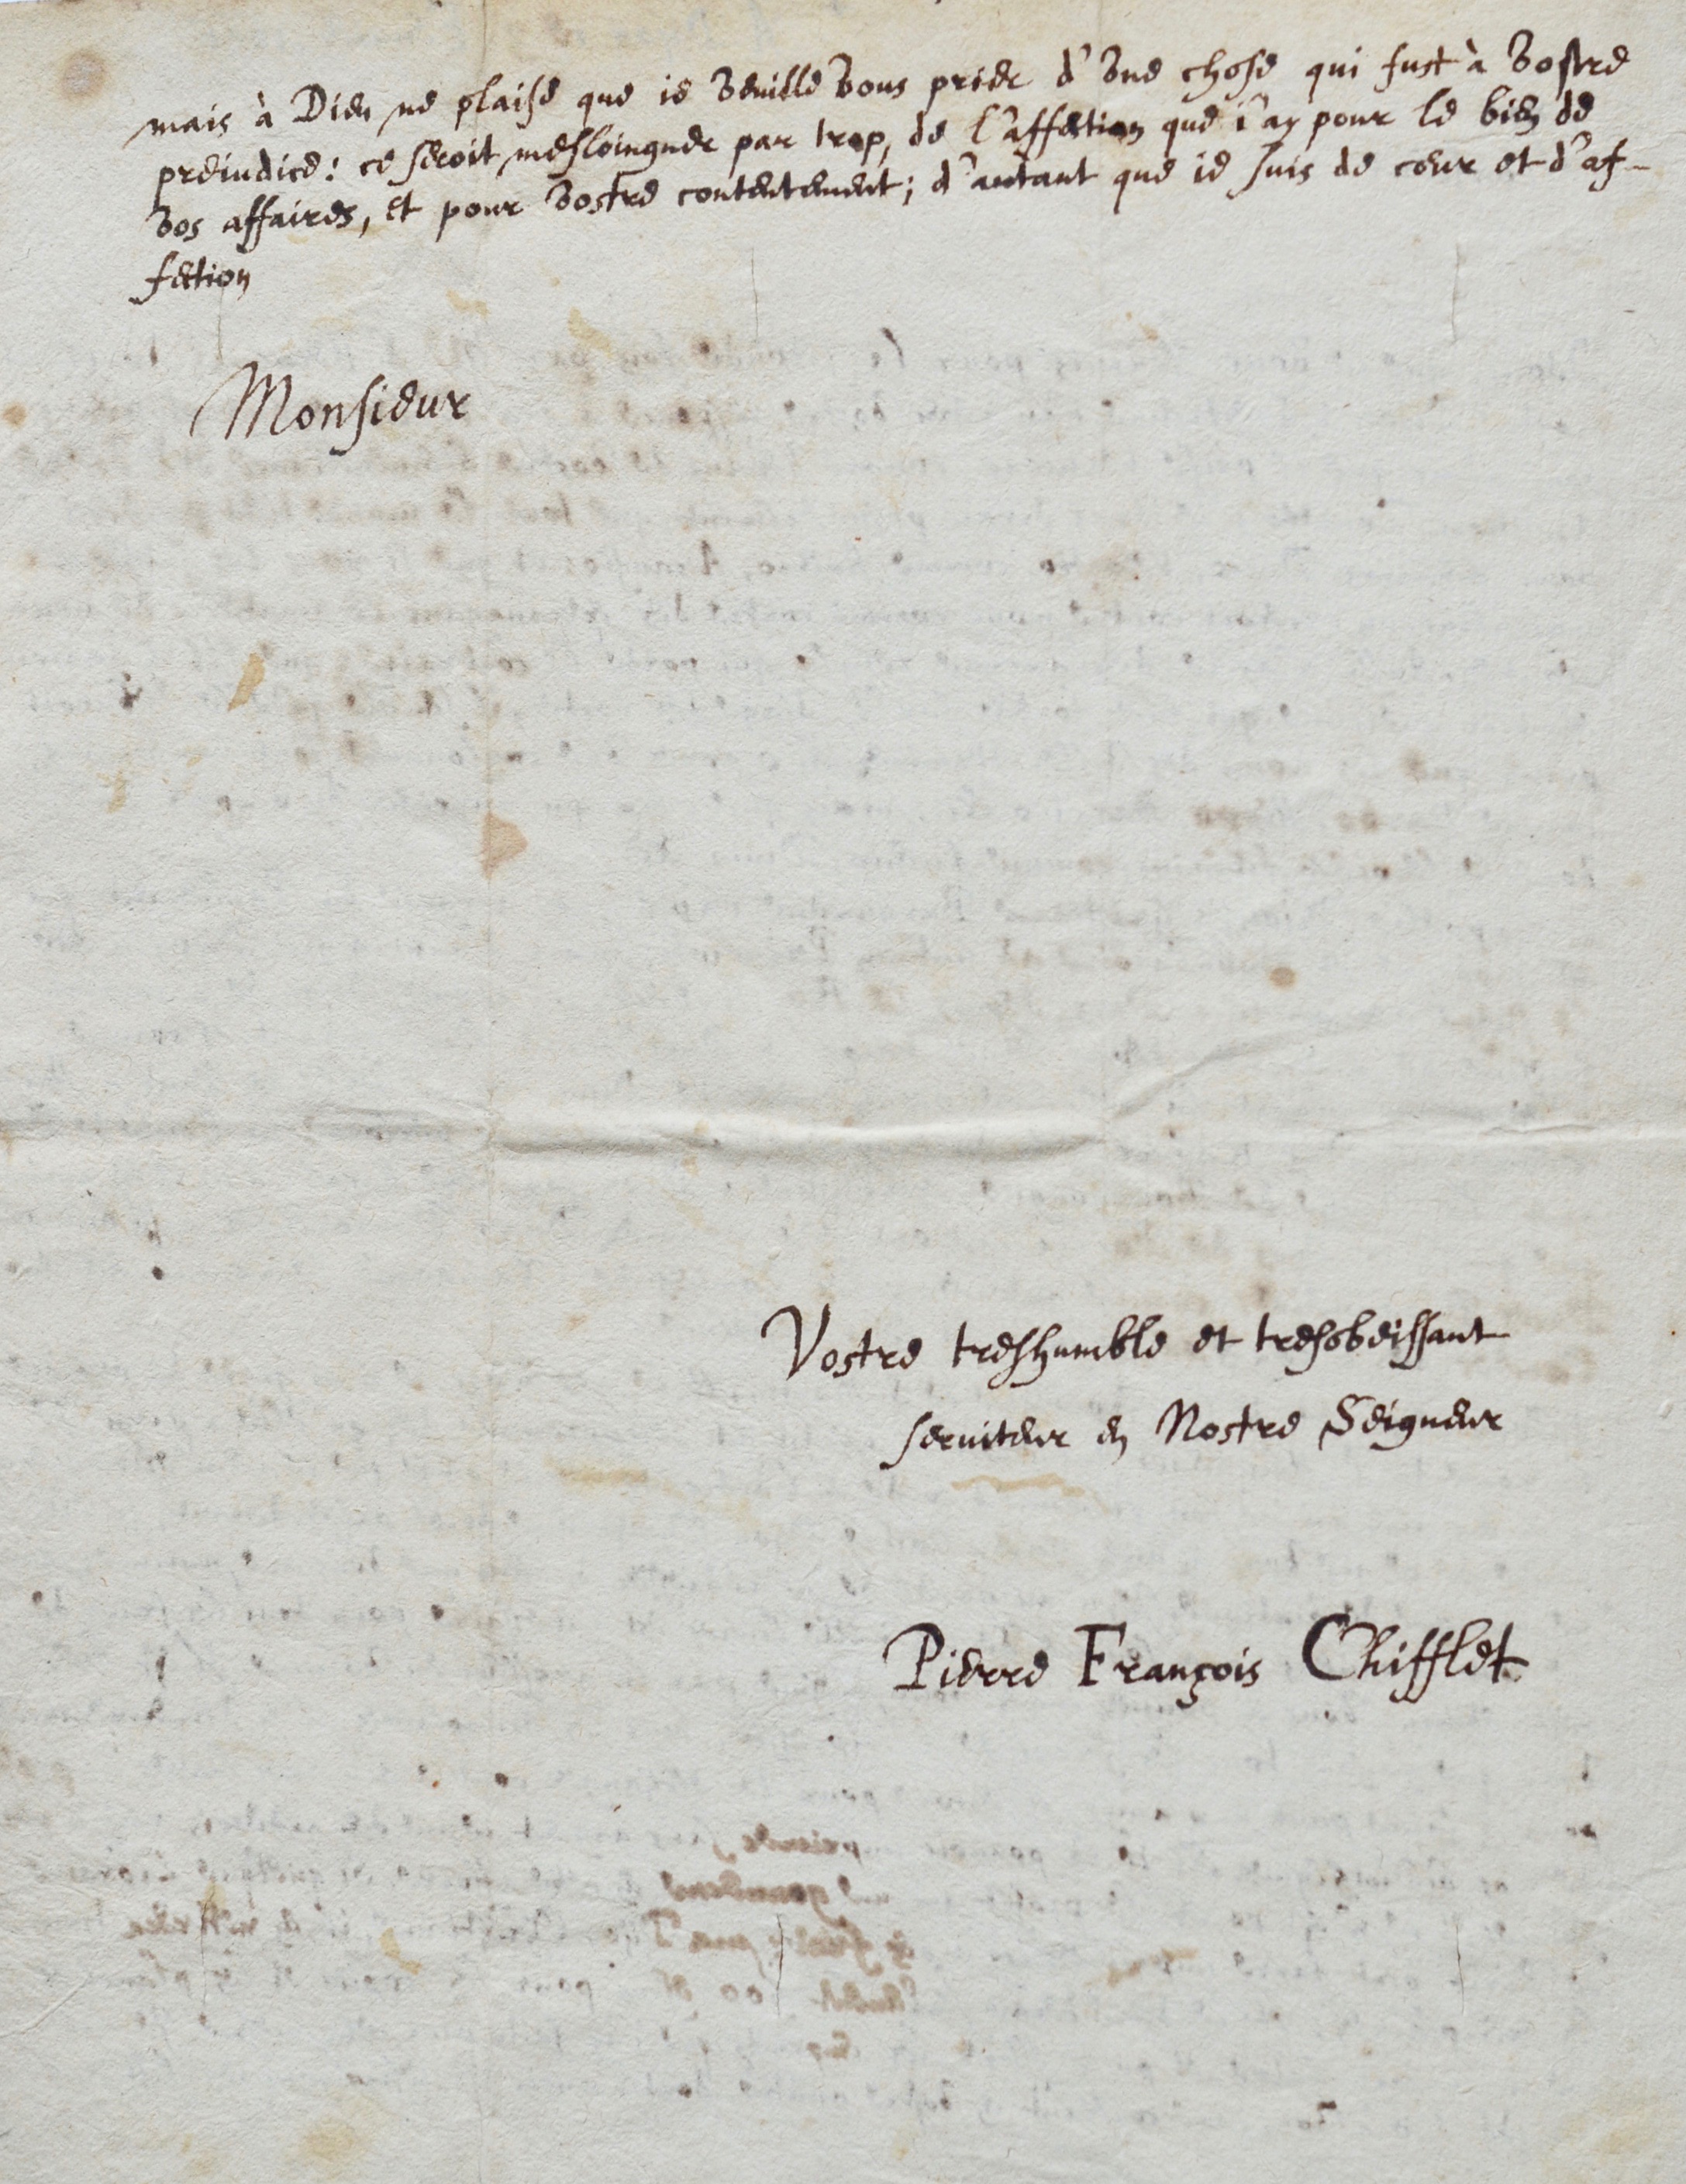 mais à Dieu ne plaise que ie veuille vous prier d'vne chose qui fust à vostre
preiudice: ce seroit mesloingner par trop, de l'affection que i'ay pour le bien de
vos affaires, et pour vostre contentement; d'autant que ie suis de cœur et d'af-
fection
Monsieur
Vostre treshumble et tresobeissant
seruiteur en Nostre Seigneur
Pierre François Chifflet